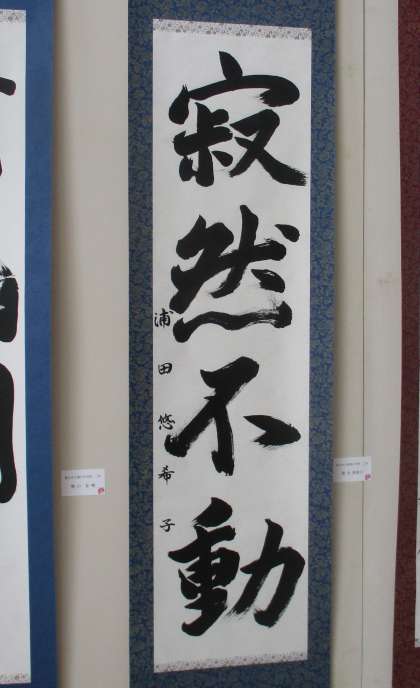 寂然不動
浦田悠希子